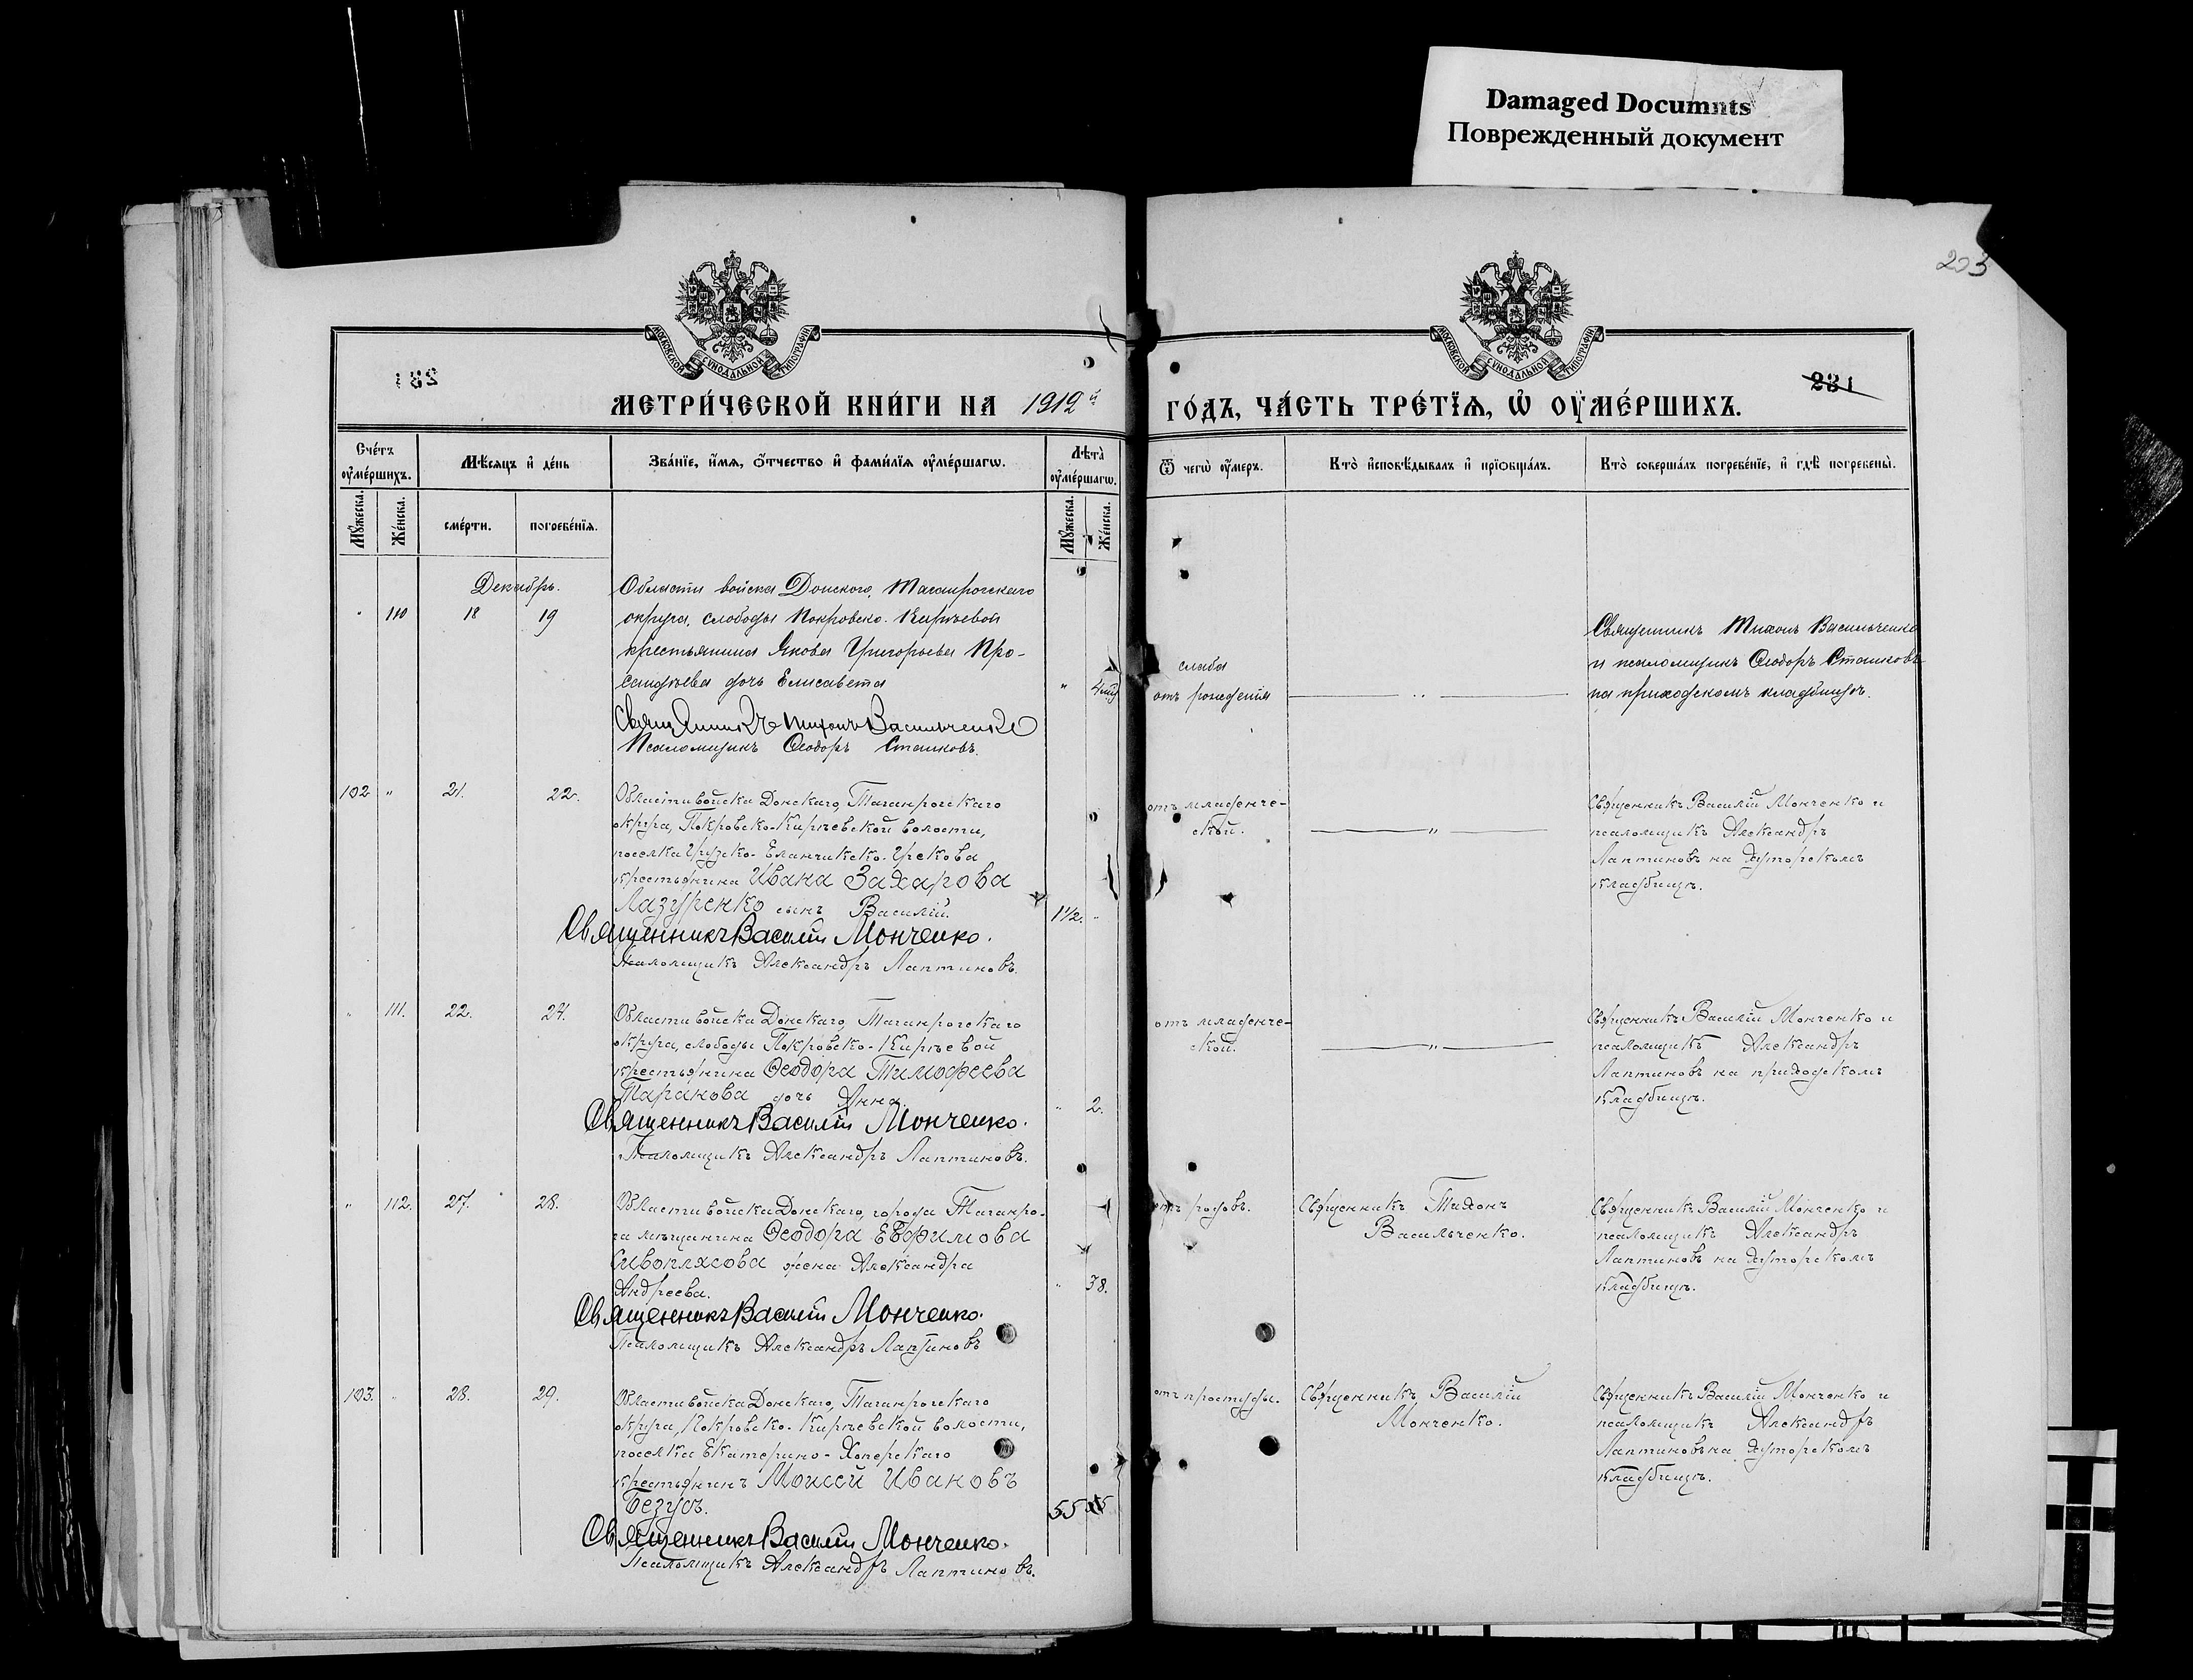 Damaged Documnts
Поврежденный документ
203
МОСКОВСКОЙ СѴНОДАЛЬНОЙ ТИПОГРАФІИ
МОСКОВСКОЙ СѴНОДАЛЬНОЙ ТИПОГРАФІИ
231
МЕТРИ́ЧЕСКОЙ КНИ́ГИ НА 1912й ГО́ДЪ, ЧА́СТЬ ТРЕ́ТЇѦ, Ѡ҆ ОУ҆МЕ́РШИХЪ.
Сче́тъ оу҆ме́ршихъ.
Мѣ́сяцъ и҆ де́нь
Зва́нїе, и҆́мя, ѻ҆́тчество и҆ фами́лїя оу҆ме́ршагѡ.
Лѣ́та оу҆ме́ршагѡ.
Ѿ чегѡ̀ оу҆́меръ.
Кто̀ и҆сповѣ́дывалъ и҆ прїѡбща́лъ.
Кто̀ соверша́лъ погребе́нїе, и҆ гдѣ̀ погребены̀.
Мꙋ́жеска.
Же́нска.
сме́рти.
погребе́нїя.
Мꙋ́жеска.
Же́нска.
Декабрь.
" 110 18 19
Области войска Донского, Таганрогскаго
округа, слободы Покровско-Киреевой
крестьянина Якова Григорьева Про-
дочь Елисавета
Священникъ Тихонъ Васильченко
Псаломщикъ Ѳеодоръ Сташковъ.
"
слаба
отъ рожденія
Священникъ Тихонъ Васильченко
и псаломщикъ Ѳеодоръ Сташковъ
на приходскомъ кладбищѣ.
102 " 21. 22.
Области войска Донскаго, Таганрогскаго
округа, Покровско-Кирѣевской волости,
поселка Грузско-Еланчикско-Грекова
крестьянина Ивана Захарова
Лазуренко сынъ Василій.
Священникъ Василій Монченко.
Псаломщикъ Александръ Лаптиновъ.
1½. "
отъ младенче-
ской.
Священникъ Василій Монченко и
псаломщикъ Александръ
Лаптиновъ на хуторскомъ
кладбищѣ.
" 111. 22. 24.
Области войска Донскаго, Таганрогскаго
округа, слободы Покровско-Кирѣевой
крестьянина Ѳеодора Тимофеева
Таранова дочь Анна.
Священникъ Василій Монченко.
Псаломщикъ Александръ Лаптиновъ.
" 2.
отъ младенче-
ской.
Священникъ Василій Монченко и
псаломщикъ Александръ
Лаптиновъ на приходскомъ
кладбищѣ.
" 112. 27. 28.
Области войска Донскаго, города Таганро-
га мѣщанина Ѳеодора Евфимова
Сивоплясова жена Александра
Андреева.
Священникъ Василій Монченко.
Псаломщикъ Александръ Лаптиновъ
" 38.
отъ родовъ.
Священникъ Тихонъ
Васильченко.
Священникъ Василій Монченко и
псаломщикъ Александръ
Лаптиновъ на хуторскомъ
кладбищѣ.
103. " 28. 29.
Области войска Донскаго, Таганрогскаго
округа, Покровско-Кирѣевской волости,
поселка Екатерино-Хоперскаго
крестьянинъ Моисей Ивановъ
Безусъ.
Священникъ Василій Монченко.
Псаломщикъ Александръ Лаптиновъ.
55
отъ простуды.
Священникъ Василій
Монченко.
Священникъ Василій Монченко и
псаломщикъ Александръ
Лаптиновъ на хуторскомъ
кладбищѣ.